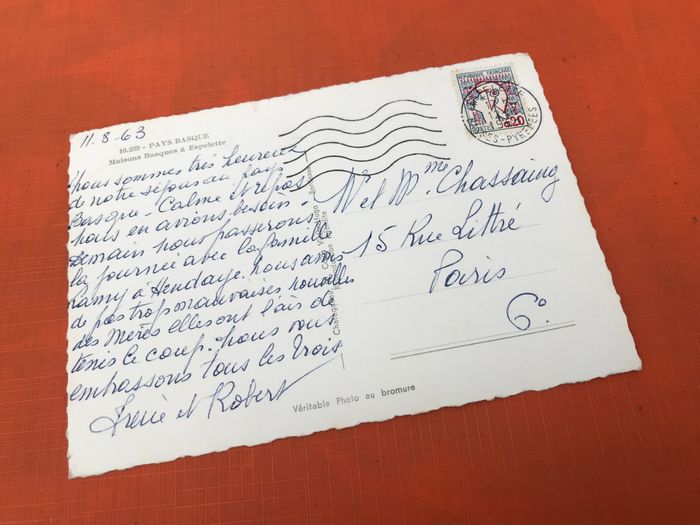 11.8.63
10.233 - PAYS BASQUE
Maisons Basques à Espelette
Nous sommes très heureux
de notre séjour au pays
Basque - Calme et repos
nous en avions besoin -
Demain nous passerons
la journée avec la famille
Lamy à Hendaye. Nous avons
de pas trop mauvaises nouvelles
des Mères elles ont l'air de
tenir le coup. Nous vous
embrassons tous les trois
Irène et Robert
Véritable Photo au bromure
REPUBLIQUE FRANÇAISE
0,20
POSTES
-PYRENEES
M et Mme Chassaing
15 Rue Littré
Paris
6°